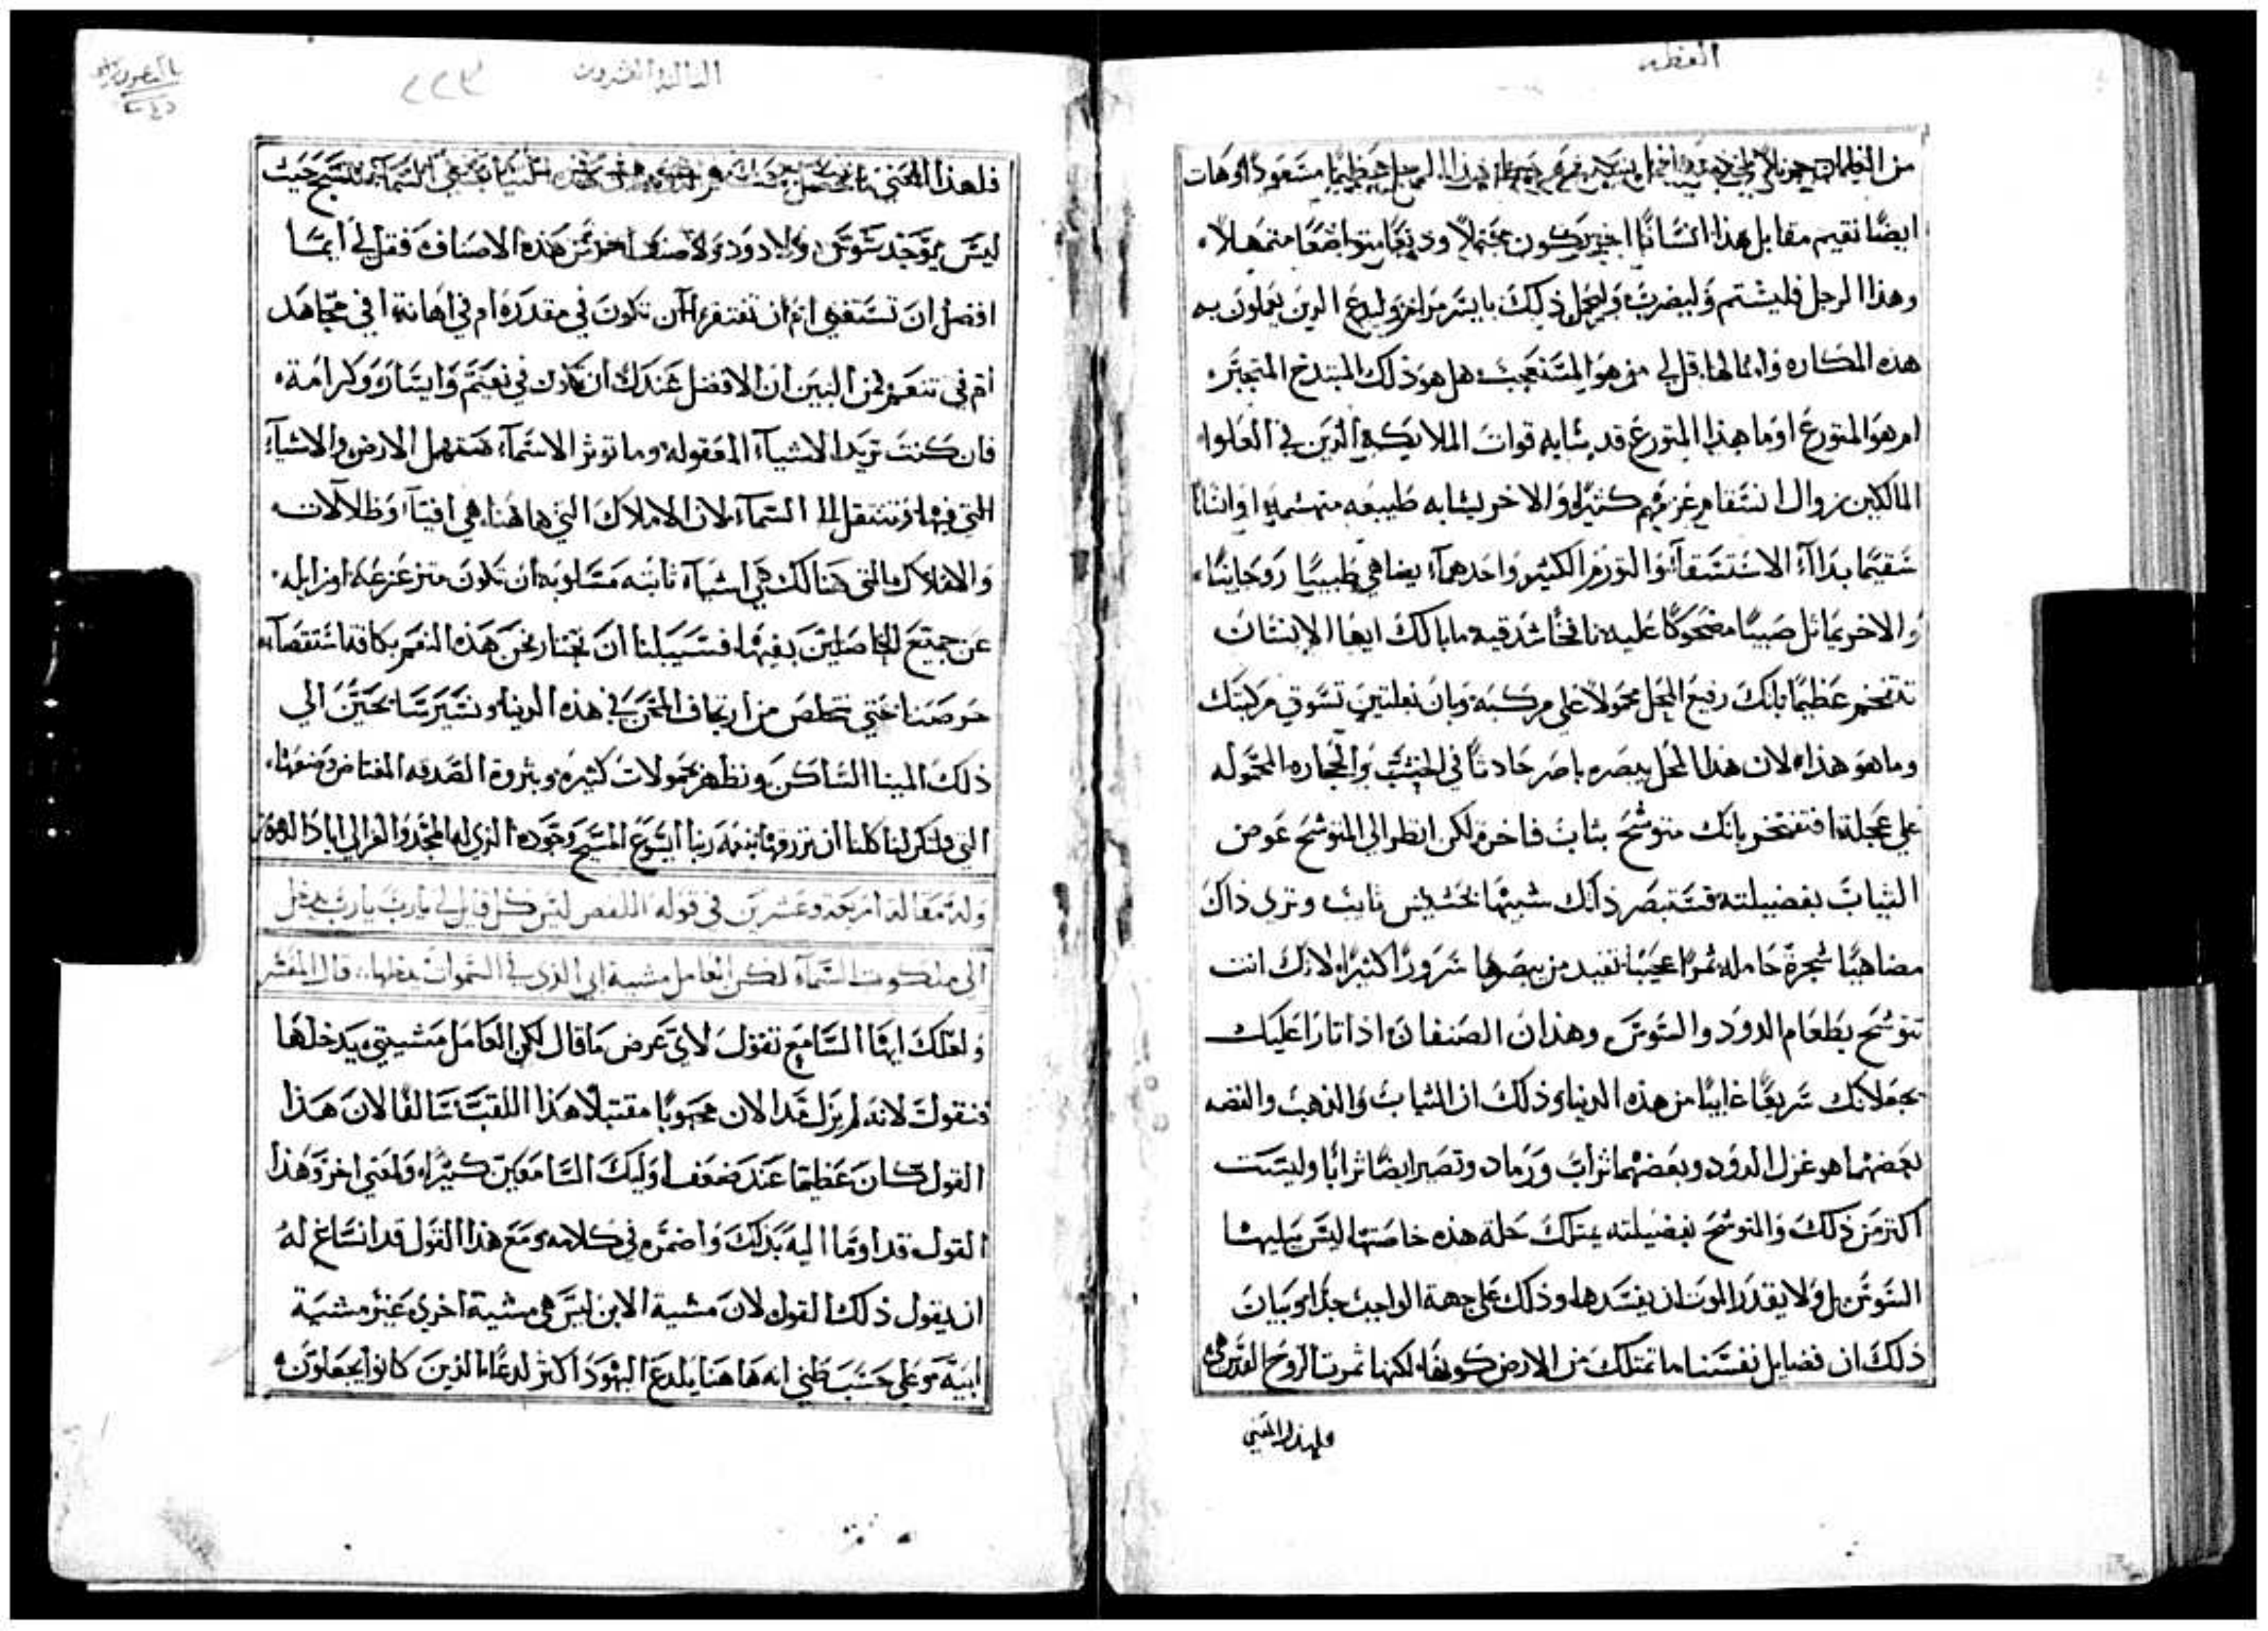 العظه
من الظلمات
ايضًا نقيم مقابل هذا انسانًا اخر يكون محتملاً وديعًا متواضعًا متمهلاً
وهذا الرجل فليشتم وليضرب وليحمل ذلك بايسر مرام وليدع الذين يعملون به
هذه المكاره وامثالها قل لي من هو المستعجب هل هو ذلك المبتذخ المتجبر
ام هو المتورع اوما هذا المتورع قد يشابه قوات الملايكة الذين في العلوا
المالكين زوال انتقام غزفهم كثيرا والاخر يشابه طبيعه متهشمه اوانسانًا
سقيمًا بداآ الاستسقآ والتورم الكثير واحدهمآ يضاهي طبيبًا روحانيًا
والاخر يماثل صبيًا مضحوكًا عليه نافخًا شدقيه مابالك ايها الانسان
تتفخم عظيمًا بانك رفيع المحل محمولاً على مركبه وبان بغلتين تسوق مركبتك
وما هو هذا لان هذا المحل يبصره باصر حادثًا في الخشب والحجاره المحموله
علي عجلة افتفتخر بانك متوشح بثياب فاخرة لكن انظر الى المتوشح عوض
الثياب بفضيلته فتستبصر ذاتك شبيهًا بحشيش نابت وتري ذاك
مضاهيًا شجرة حامله ثمرًا عجيبًا تفيد من يبصرها سرورًا كثيرًا لانك انت
تتوشح بطعام الدود والسوس وهذان الصنفان اذا ثارا عليك
يجعلانك سريعًا غايبًا من هذه الدنيا وذلك ان الثياب والذهب والفضه
بعضهما هو غزل الدود وبعضهما تراب ورماد وتصير ايضًا ترابًا وليست
اكثر من ذلك والتوشح بفضيلته يمتلك حلة هذه خاصتها ليس يبليها
السوس بل ولا يقدر الموت ان يفسدها وذلك على جهة الواجب جدًا وبيان
ذلك ان فضايل نفسنا ما تمتلك من الارض كونها لكنها ثمرت الروح القدس
فلهذا المعني
الثالثه العشرون
٢٢٣
فلهذا المعني
ليس يوجد سوس ولا دود ولا صنف اخر من هذه الاصناف فقل لي ايما
افضل ان تستغني ام ان تفتقر ان تكون في مقدرة ام في اهانة افي مجاهد
ام في تنعم فمن البين ان الافضل عندك ان تكون في نعيم وايسار وكرامة
فان كنت تريد الاشيآ المعقوله وما توثر الاسمآ فتهمل الارض والاشيآ
التي فيها وتنتقل الى السمآ لان الاملاك التي هاهنا هي افيآ وظلالات
والاملاك التي هنالك هي اشيآ ثابته مسلوبه ان تكون متزعزعه او زايله
عن جميع الحاصلين بفيها فسبيلنا ان نختار نحن هذه النعم بكافة استقصآ
حرصنا حتي نتخلص من ارتجاف المحن في هذه الدنيا ونسير سايحين الي
ذلك المينا الساكن ونظهر بحمولات كثيره وبثروة الصدقه المفتاض وصفها
التي فليكن لنا كلنا ان نرزقها بنعمة ربنا ايسوع المسيح وجوده الذي له المجد والعز الى اباد الدهور
وله مقالة اربعة وعشرين في قوله المقص ليس كل قايل لي يارب يارب يدخل
الى ملكوت السمآ لكن العامل مشية ابي الذي في السموات يدخلها.. قال المفسر
ولعلك ايها السامع تقول لاي غرض ما قال لكن العامل مشيتي يدخلها
فنقول لانه لم يزل قد الان محبوبًا مقتبلاً هذا اللقب سالفًا لان هذا
القول كان عظيمًا عند ضعف اوليك السامعين كثيرًا ولمعني اخر وهذا
القول قد اوما اليه بذلك واضمره في كلامه ومع هذا القول قد انساغ له
ان يقول ذلك القول لان مشية الابن ليس هي مشية اخري غير مشية
ابيه وعلي حسب ظني انه هاهنا يلدع اليهود اكثر لدعًا الذين كانوا يجعلون